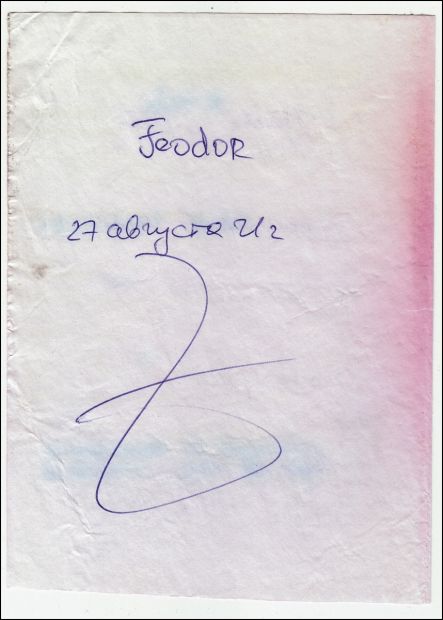 Feodor
27 августа 21 г